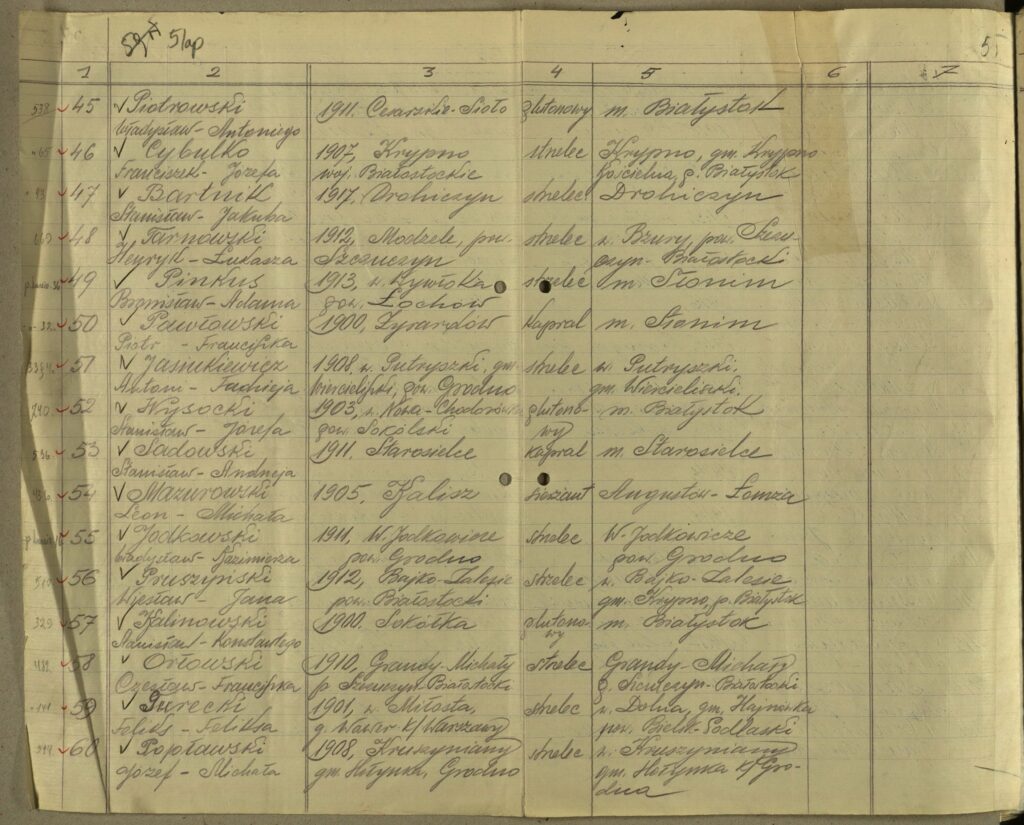 51ap
1 2 3 4 5 6 7
538 45 Piotrowski 1911. Carskie-Sioło plutonowy m. Białystok
Władysław-Antoniego
46 Cybulko 1907, Krypno strelec Krypno, gm. Krypno
Franciszek-Józefa woj. Białostockie Kościelna, p. Białystok
47 Bartnik 1917. Drohiczyn strelec Drohiczyn
Stanisław-Jakuba
48 Tarnowski 1912, Modzele, pow. strelec w. Bzury, pow. Szczu-
Henryk-Łukasza Szczuczyn czyn-Białostocki
49 Pinkus 1913, strzelec m. Słonim
Bronisław-Adama pow. Łochów
50 Pawłowski 1900, Żyrardów kapral m. Słonim
Piotr - Franciszka
51 Jasiukiewicz 1908, w. Putryszki, gm. strelec w. Putryszki,
Antoni-Tadueja Wiercieliszki, pow. Grodno gm. Wiercieliszki.
52 Wysocki 1903, w. Nowa-Chodorówka plutono- m. Białystok
Stanisław-Józefa pow. Sokólski wy
536 53 Sadowski 1911. Starosielce kapral m. Starosielce
Stanisław-Andrzeja
54 Mazurowski 1905, Kalisz sierżant Augustów-Łomża
Leon - Michała
55 Jodkowski 1911, W. Jodkowicze strelec W. Jodkowicze
Władysław-Kazimierza pow. Grodno pow. Grodno
56 Pruszyński 1912, Bajko-Zalesie strzelec w. Bajko-Zalesie
Wiesław - Jana pow. Białostocki gm. Krypno, p. Białystok
329 57 Kalinowski 1900. Sokółka plutono- m. Białystok
Stanisław-Konstantego wy
58 Orłowski 1910, Grandy-Michały strelec Grandy-Michały
Czesław-Franciszka p. Szczuczyn-Białostocki p. Szczuczyn-Białostocki
59 Turecki 1901, w. Miłosta, strelec w. Dolna, gm. Hajnówka
Feliks - Feliksa g. Wawer k/Warszawy pow. Bielsk-Podlaski
60 Popławski 1908, Kruszyniany strelec w. Kruszyniany
Józef - Michała gm. Hołynka, Grodno gm. Hołynka k/Gro-
dna